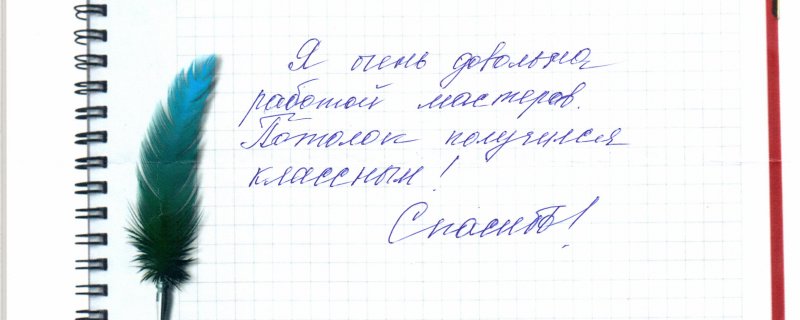 Я очень довольна
работой мастеров.
Потолок получился
классным!
Спасибо!